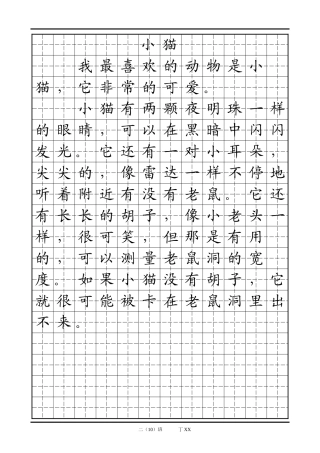 小猫
我最喜欢的动物是小
猫，它非常的可爱。
小猫有两颗夜明珠一样
的眼睛，可以在黑暗中闪闪
发光。它还有一对小耳朵，
尖尖的，像雷达一样不停地
听着附近有没有老鼠。它还
有长长的胡子，像小老头一
样，很可笑，但那是有用
的，可以测量老鼠洞的宽
度。如果小猫没有胡子，它
就很可能被卡在老鼠洞里出
不来。
二（10）班 丁XX